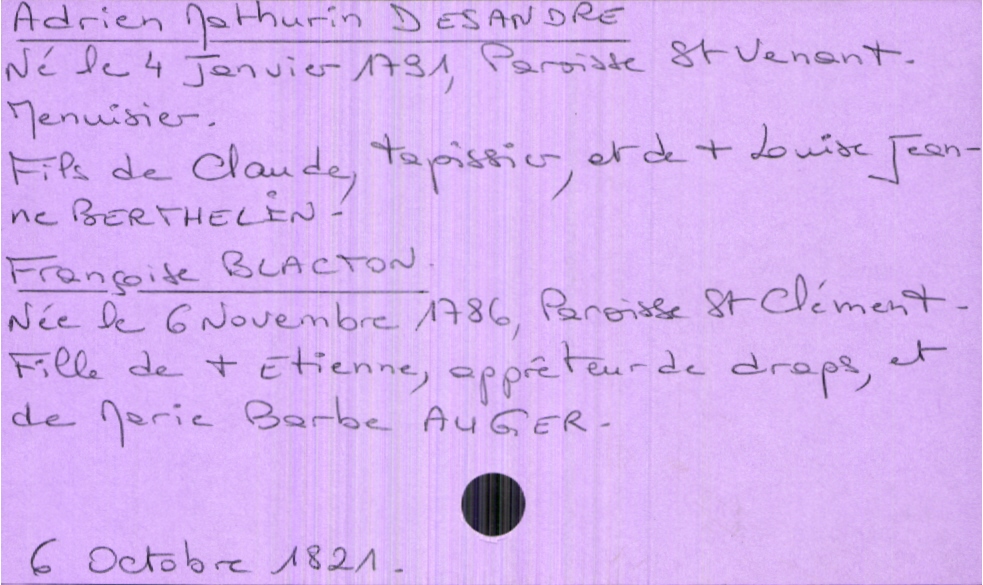 Adrien Mathurin DESANDRE
Né le 4 Janvier 1791, Paroisse St Venant.
Menuisier.
Fils de Claude, tapissier, et de + Louise Jean-
ne BERTHELIN -
Françoise BLACTON.
Née le 6 Novembre 1786, Paroisse St Clément -
Fille de + Etienne, apprêteur de draps, et
de Marie Barbe AUGER -
6 Octobre 1821.